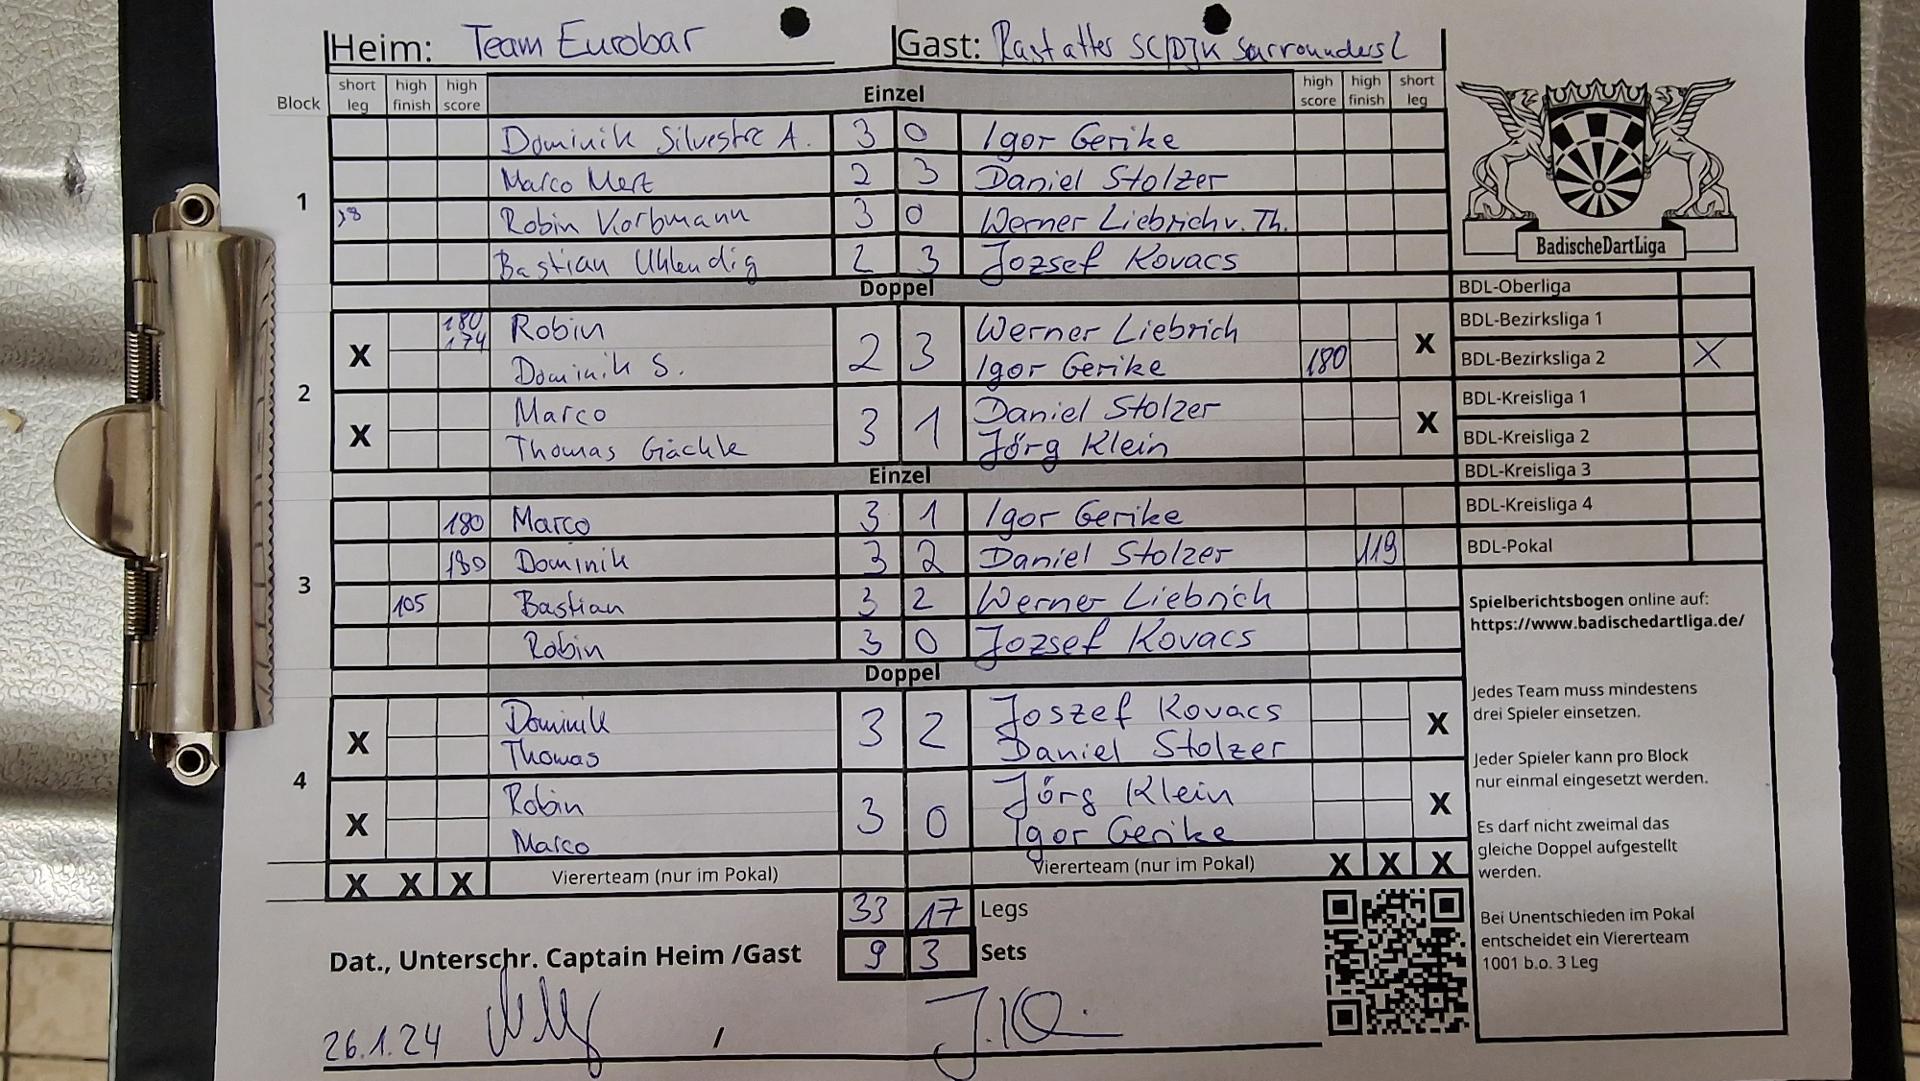 Heim: Team Eurobar Gast: Rastatter SC/DJK Surrounders 2
Block short leg high finish high score Einzel high score high finish short leg
1
Dominik Silvestre A. 3 0 Igor Gerike
Marco Mert 2 3 Daniel Stolzer
18 Robin Korbmann 3 0 Werner Liebrich v. Th.
Bastian Uhlendig 2 3 Jozsef Kovacs
Doppel
2
X 180 174 Robin 2 3 Werner Liebrich X
Dominik S. Igor Gerike 180
X Marco 3 1 Daniel Stolzer X
Thomas Gächle Jörg Klein
Einzel
3
180 Marco 3 1 Igor Gerike
180 Dominik 3 2 Daniel Stolzer 119
105 Bastian 3 2 Werner Liebrich
Robin 3 0 Jozsef Kovacs
Doppel
4
X Dominik 3 2 Joszef Kovacs X
Thomas Daniel Stolzer
X Robin 3 0 Jörg Klein X
Marco Igor Gerike
X X X Viererteam (nur im Pokal) Viererteam (nur im Pokal) X X X
33 17 Legs
Dat., Unterschr. Captain Heim /Gast 9 3 Sets
26.1.24 /
BadischeDartLiga
BDL-Oberliga
BDL-Bezirksliga 1
BDL-Bezirksliga 2 X
BDL-Kreisliga 1
BDL-Kreisliga 2
BDL-Kreisliga 3
BDL-Kreisliga 4
BDL-Pokal
Spielberichtsbogen online auf:
https://www.badischedartliga.de/
Jedes Team muss mindestens
drei Spieler einsetzen.
Jeder Spieler kann pro Block
nur einmal eingesetzt werden.
Es darf nicht zweimal das
gleiche Doppel aufgestellt
werden.
Bei Unentschieden im Pokal
entscheidet ein Viererteam
1001 b.o. 3 Leg